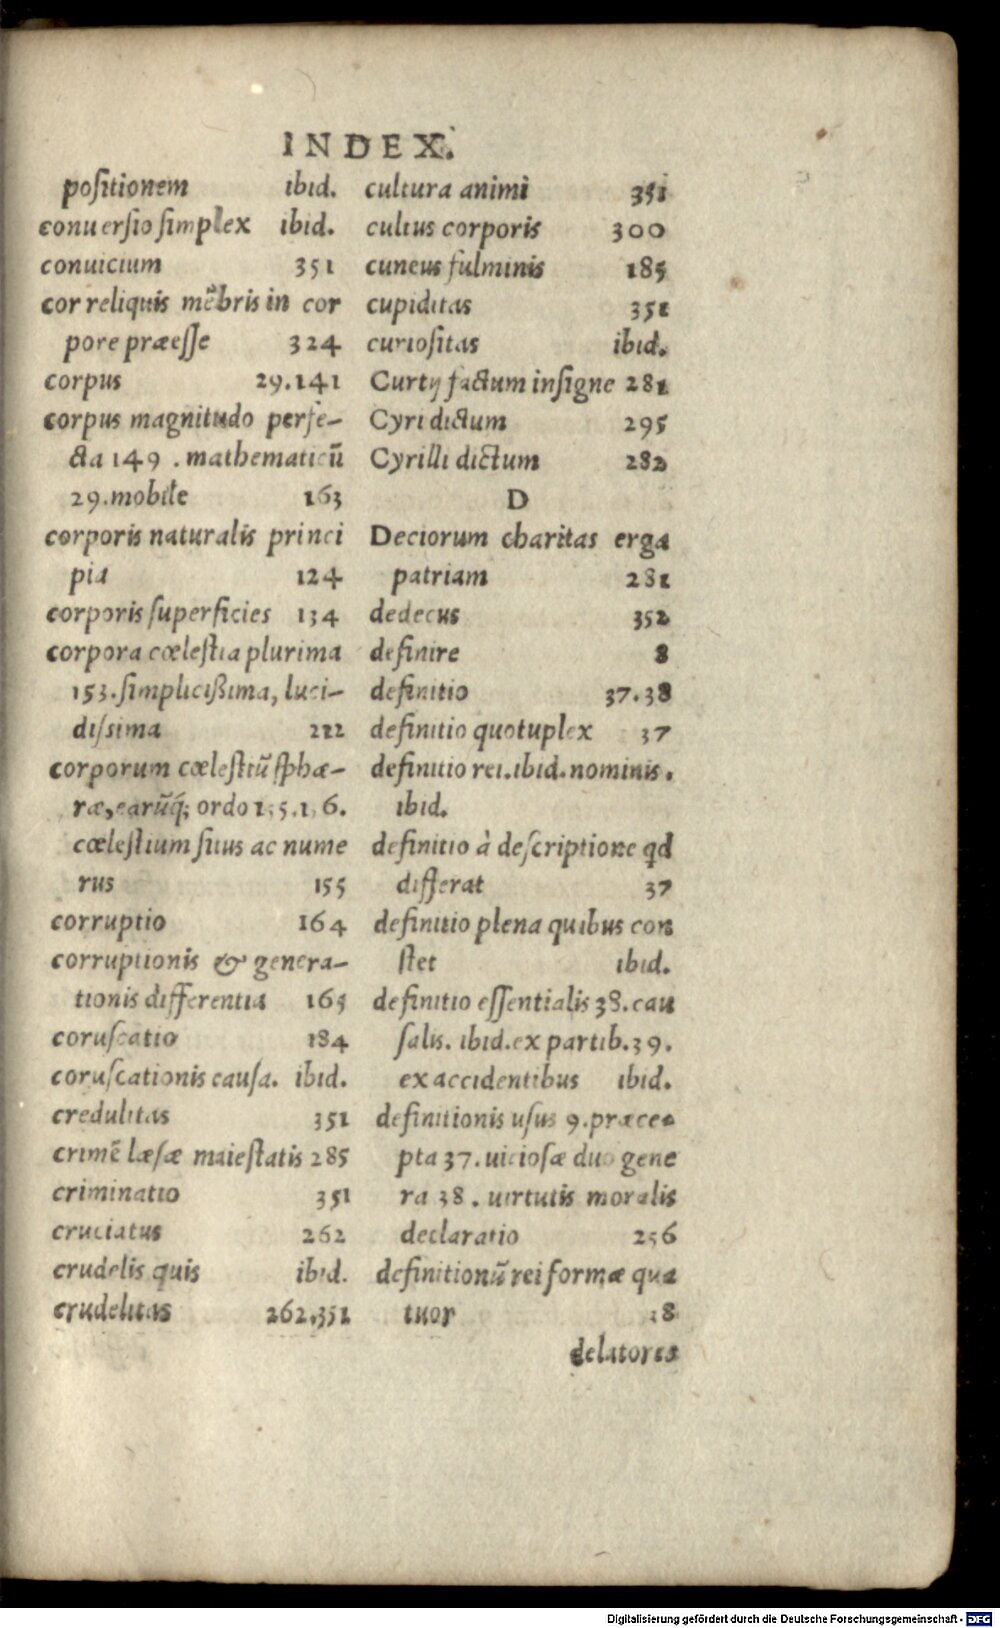 INDEX.
positionem ibid.
conuersio simplex ibid.
conuicium 351
cor reliquis mẽbris in cor
pore præesse 324
corpus 29.141
corpus magnitudo perfe-
cta 149. mathematicũ
29. mobile 163
corporis naturalis princi
pia 124
corporis superficies 134
corpora cœlestia plurima
153. simplicißima, luci-
dissima 222
corporum cœlestiũ sphæ-
ræ, earũq́; ordo
cœlestium situs ac nume
rus 155
corruptio 164
corruptionis & genera-
tionis differentia 165
coruscatio 184
coruscationis causa. ibid.
credulitas 351
crimẽ læsæ maiestatis 285
criminatio 351
cruciatus 262
crudelis quis ibid.
crudelitas 262.351
cultura animi 351
cultus corporis 300
cuneus fulminis 185
cupiditas 351
curiositas ibid.
Curtij factum insigne 281
Cyri dictum 295
Cyrilli dictum 282
D
Deciorum charitas erga
patriam 281
dedecus 352
definire 8
definitio 37.38
definitio quotuplex 37
definitio rei. ibid. nominis.
ibid.
definitio à descriptione qd
differat 37
definitio plena quibus con
stet ibid.
definitio essentialis 38. cau
salis. ibid. ex partib. 39.
ex accidentibus ibid.
definitionis usus 9. præce-
pta 37. uiciosæ duo gene
ra 38. uirtutis moralis
declaratio 256
definitionũ rei formæ qua
tuor 38
delatores
Digitalisierung gefördert durch die Deutsche Forschungsgemeinschaft - DFG